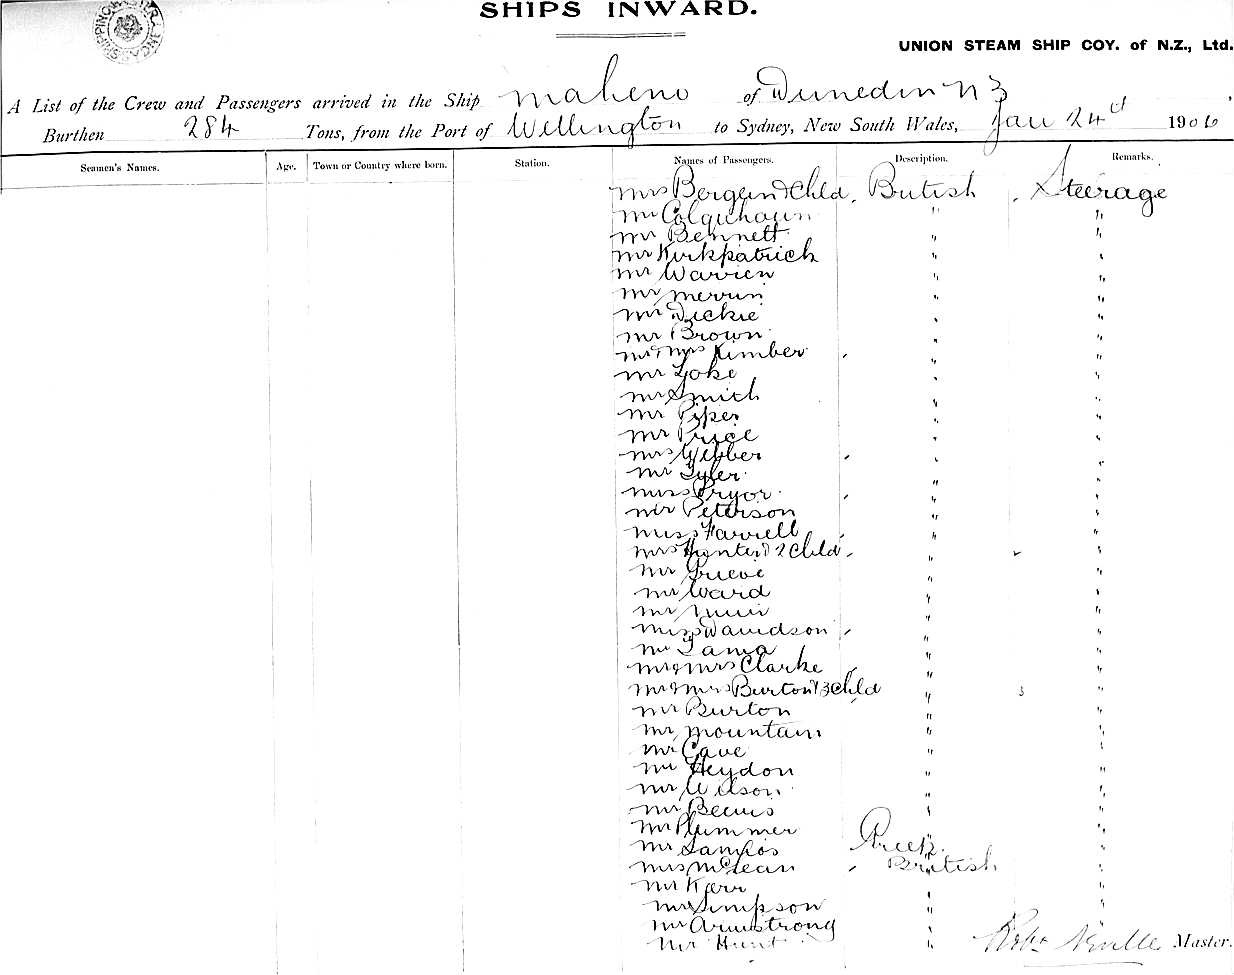 SHIPS INWARD.
UNION STEAM SHIP COY. of N.Z., Ltd.
A List of the Crew and Passengers arrived in the Ship Maheno of Dunedin N Z
Burthen 284 Tons, from the Port of Wellington to Sydney, New South Wales, Jan 24th 1906
Seamen's Names. Age. Town or Country where born. Station. Names of Passengers. Description. Remarks.
Mrs & Chld British Steerage
Mr Colquhoun " "
Mr Bennett " "
Mr Kirkpatrick " "
Mr Warren " "
Mr Merrin " "
Mr Dickie " "
Mr Brown " "
Mr & Mrs Kimber " "
Mr " "
Mr Smith " "
Mr Piper " "
Mr Price " "
Mrs Webber " "
Mr Tyler " "
Miss Pryor " "
Mr Peterson " "
Miss Farrell " "
Mrs Hunter & 2 Chld " "
Mr Grieve " "
Mr Ward " "
Mr Muir " "
Miss Davidson " "
Mr " "
Mr & Mrs Clarke " "
Mr & Mrs Burton & 3 Chld " "
Mr Burton " "
Mr Mountain " "
Mr Cave " "
Mr Heydon " "
Mr Wilson " "
Mr " "
Mr Plummer " "
Mr Greek "
Mrs McLean British "
Mr Kerr " "
Mr Simpson " "
Mr Armstrong " "
Mr Hunt " Master.